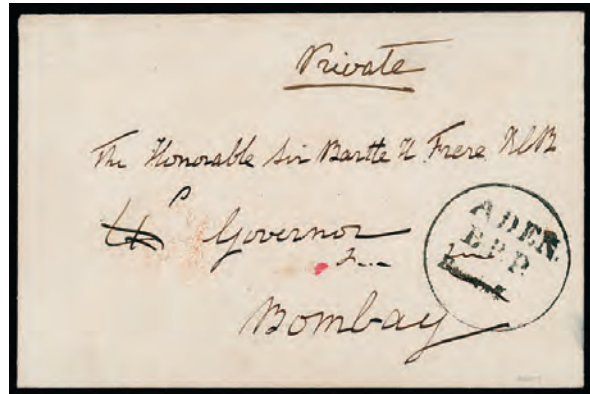 Private
The Honorable Sir Bartle H Frere KCB
Governor
Bombay
ADEN.
B.P.P.